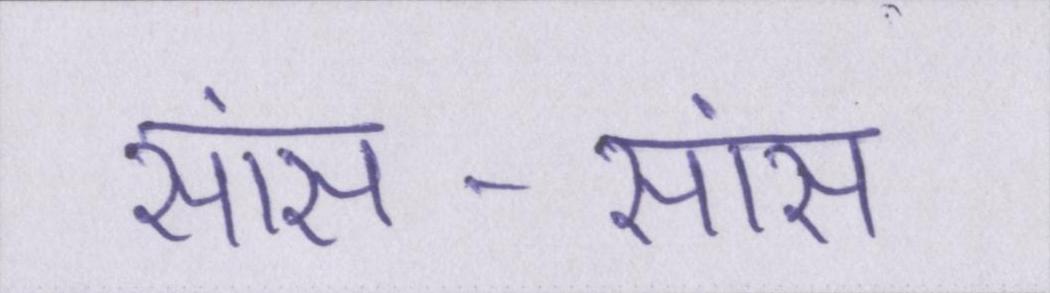 सांस - सांस